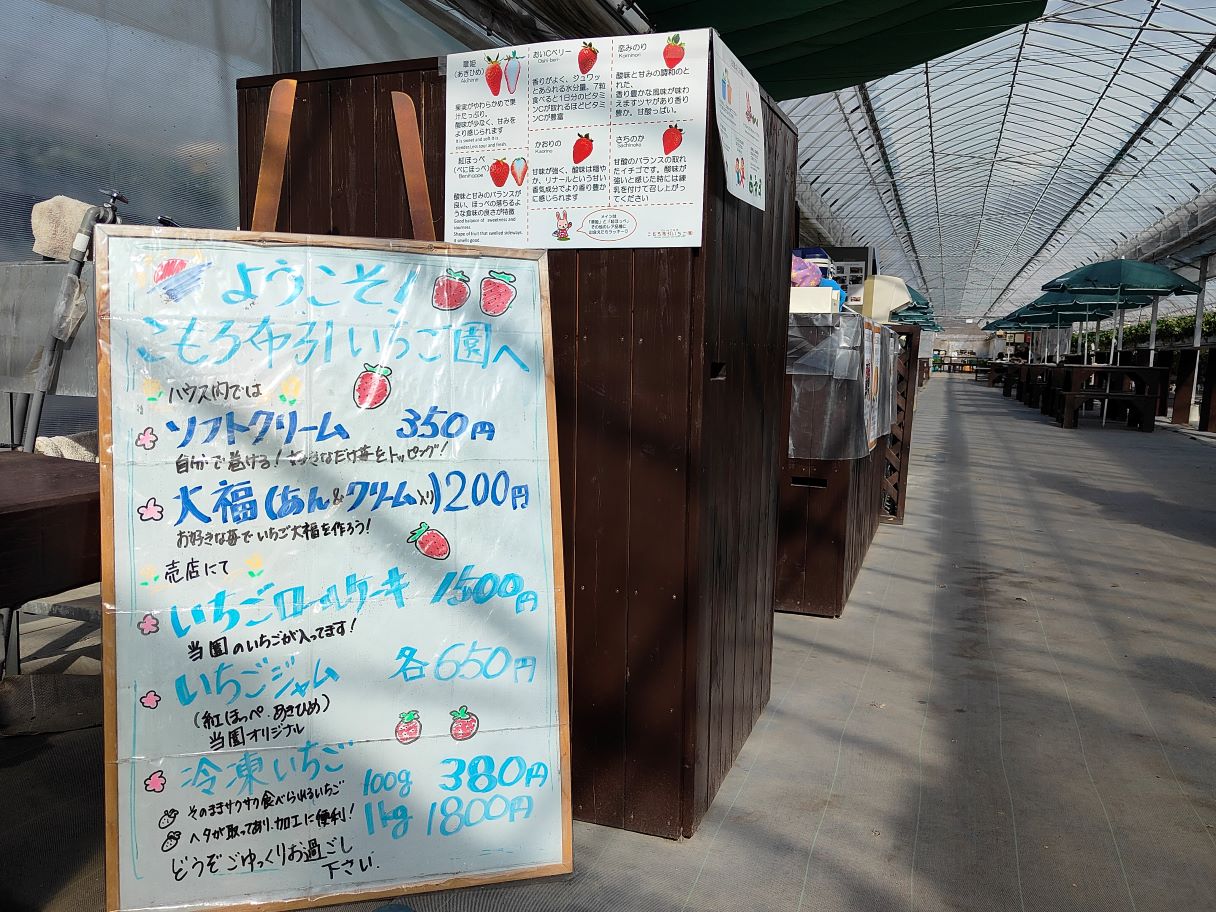 章姫
(あきひめ)
Akihime
果実がやわらかめで果
汁たっぷり。
酸味が少なく、甘みを
より感じられます
It is sweet and soft.It is
紅ほっぺ
(べにほっぺ)
Benihoppe
酸味と甘みのバランスが
良い、ほっぺの落ちるよ
うな食味の良さが特徴
Good balance of sweetness and
sourness.
Shape of fruit that swelled sideways.
It smells good.
おいCベリー
Oishi beri
香りがよく、ジュワッ
とあふれる水分量。7粒
食べると1日分のビタミ
ンCが取れるほどビタミ
ンCが豊富
恋みのり
Koiminori
酸味と甘みの調和のと
れた、
香り豊かな風味が味わ
えますツヤがあり香り
豊か。甘酸っぱい。
かおりの
Kaorino
甘味が強く、酸味は穏や
か、リナールという甘い
香気成分でより香り豊か
に感じられます
さちのか
Sachinoka
甘酸のバランスの取れ
たイチゴです。酸味が
強いと感じた時には練
乳を付けて召し上がっ
てください
メインは
「章姫」と「紅ほっぺ」
その他のレア品種に
出会えたらラッキー!!
こもろ布引いちご園
ようこそ!
こもろ布引いちご園へ
ハウス内では
ソフトクリーム 350円
自分で巻ける!好きなだけ苺をトッピング!
大福(あん&クリーム入り)200円
お好きな苺でいちご大福を作ろう!
売店にて
いちごロールケーキ 1500円
当園のいちごが入ってます!
いちごジャム 各650円
(紅ほっぺ・あきひめ)
当園オリジナル
冷凍いちご 100g 380円
そのままサクサク食べられるいちご
ヘタが取ってあり、加工に便利! 1kg 1800円
どうぞごゆっくりお過ごし
下さい.